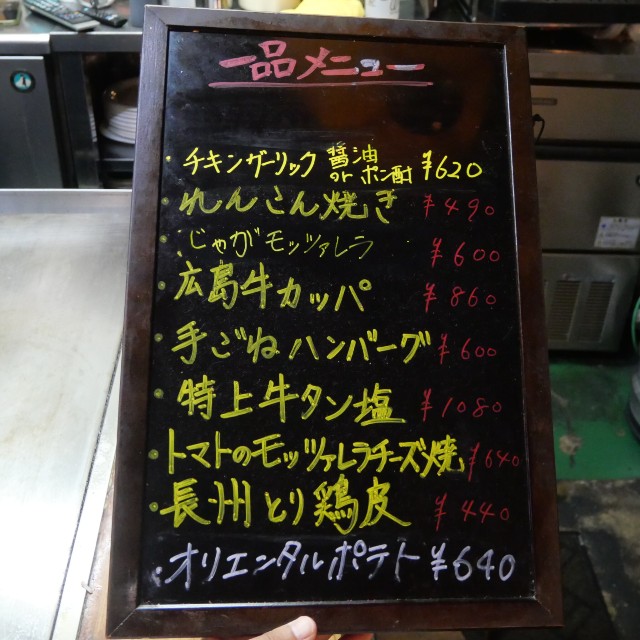 一品メニュー
・チキンガーリック 醤油 or ポン酢 ¥620
・れんこん焼き ¥490
・じゃがモッツァレラ ¥600
・広島牛カッパ ¥860
・手ごねハンバーグ ¥600
・特上牛タン塩 ¥1080
・トマトのモッツァレラチーズ焼 ¥640
・長州とり鶏皮 ¥440
・オリエンタルポテト ¥640